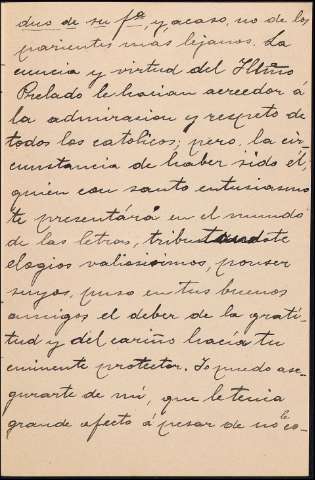 duo de su fa, y acaso, no de los
parientes más lejanos. La
ciencia y virtud del Iltmo
Prelado le hacían acreedor á
la admiracion y respeto de
todos los catolicos; pero, la cir-
cunstancia de haber sido él,
quien con santo entusiasmo
te presentára en el mundo
de las letras, tributandote
elogios valiosisimos, por ser
suyos, puso en tus buenos
amigos el deber de la grati-
tud y del cariño hacia tu
eminente protector. Yo puedo ase-
gurarte de mí, que le tenia
grande afecto á pesar de no le co-